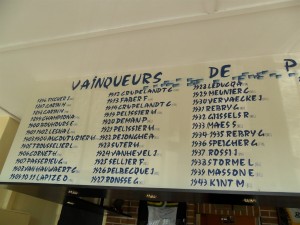 VAINQUEURS DE P
1896 FISCHER J.
1897 GARIN M
1898 GARIN M
1899 CHAMPION A
1900 BOUHOURS E
1901 LESNA L
1904 AUCOUTURIER H
1905 TROUSSELIER L
1906 CORNET H
1907 PASSERIEU G
1908 VAN HAUWAERT C
1909.10.11 LAPIZE O
1912 CRUPELANDT C
1913 FABER F
1914 CRUPELANDT C
1919 PELISSIER H
1920 DEMAN P
1921 PELISSIER H
1922 DEJONGHE A
1923 SUTER H
1924 VAN HEVEL J
1925 SELLIER F
1926 DELBECQUE J
1927 RONSSE G
1928 LEDUCQ A
1929 MEUNIER C
1930 VERVAECKE J
1931 REBRY G
1932 GIJSSELS R
1933 MAES S
1934.1935 REBRY G
1936 SPEICHER G
1937 ROSSI J
1938 STORME L
1939 MASSON E
1943 KINT M